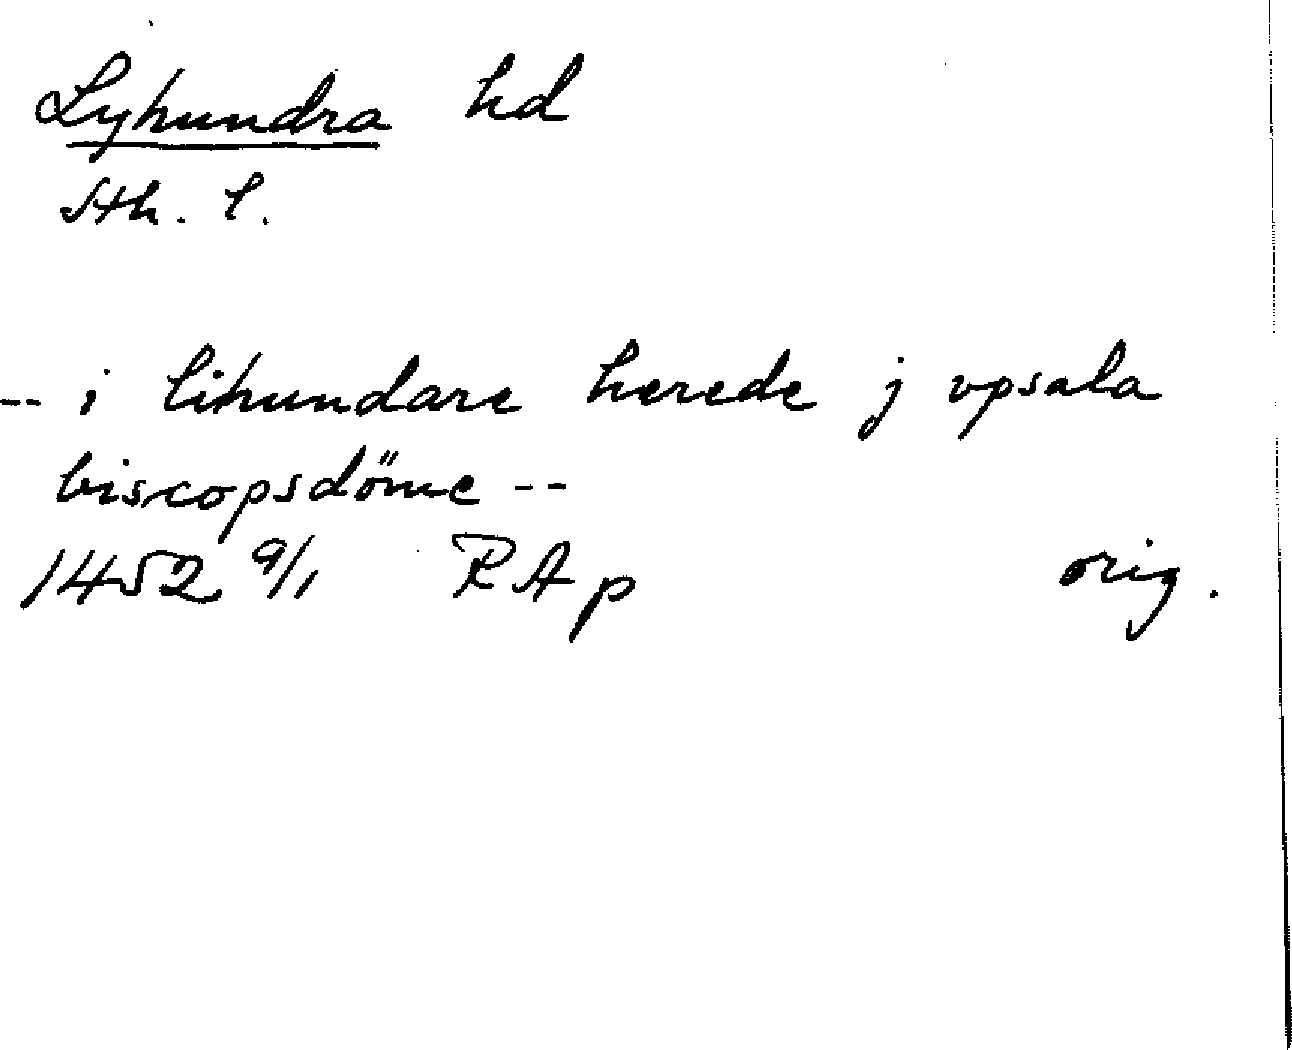 Lyhundra hd
Sth. l.
-- i lihundare herede j vpsala
biscopsdöme --
1452 9/1 RAp orig.